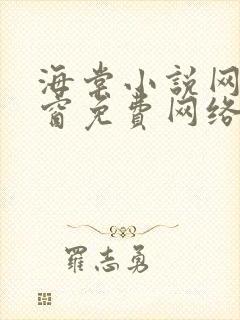 海棠小说网
窗免费网络
罗志勇